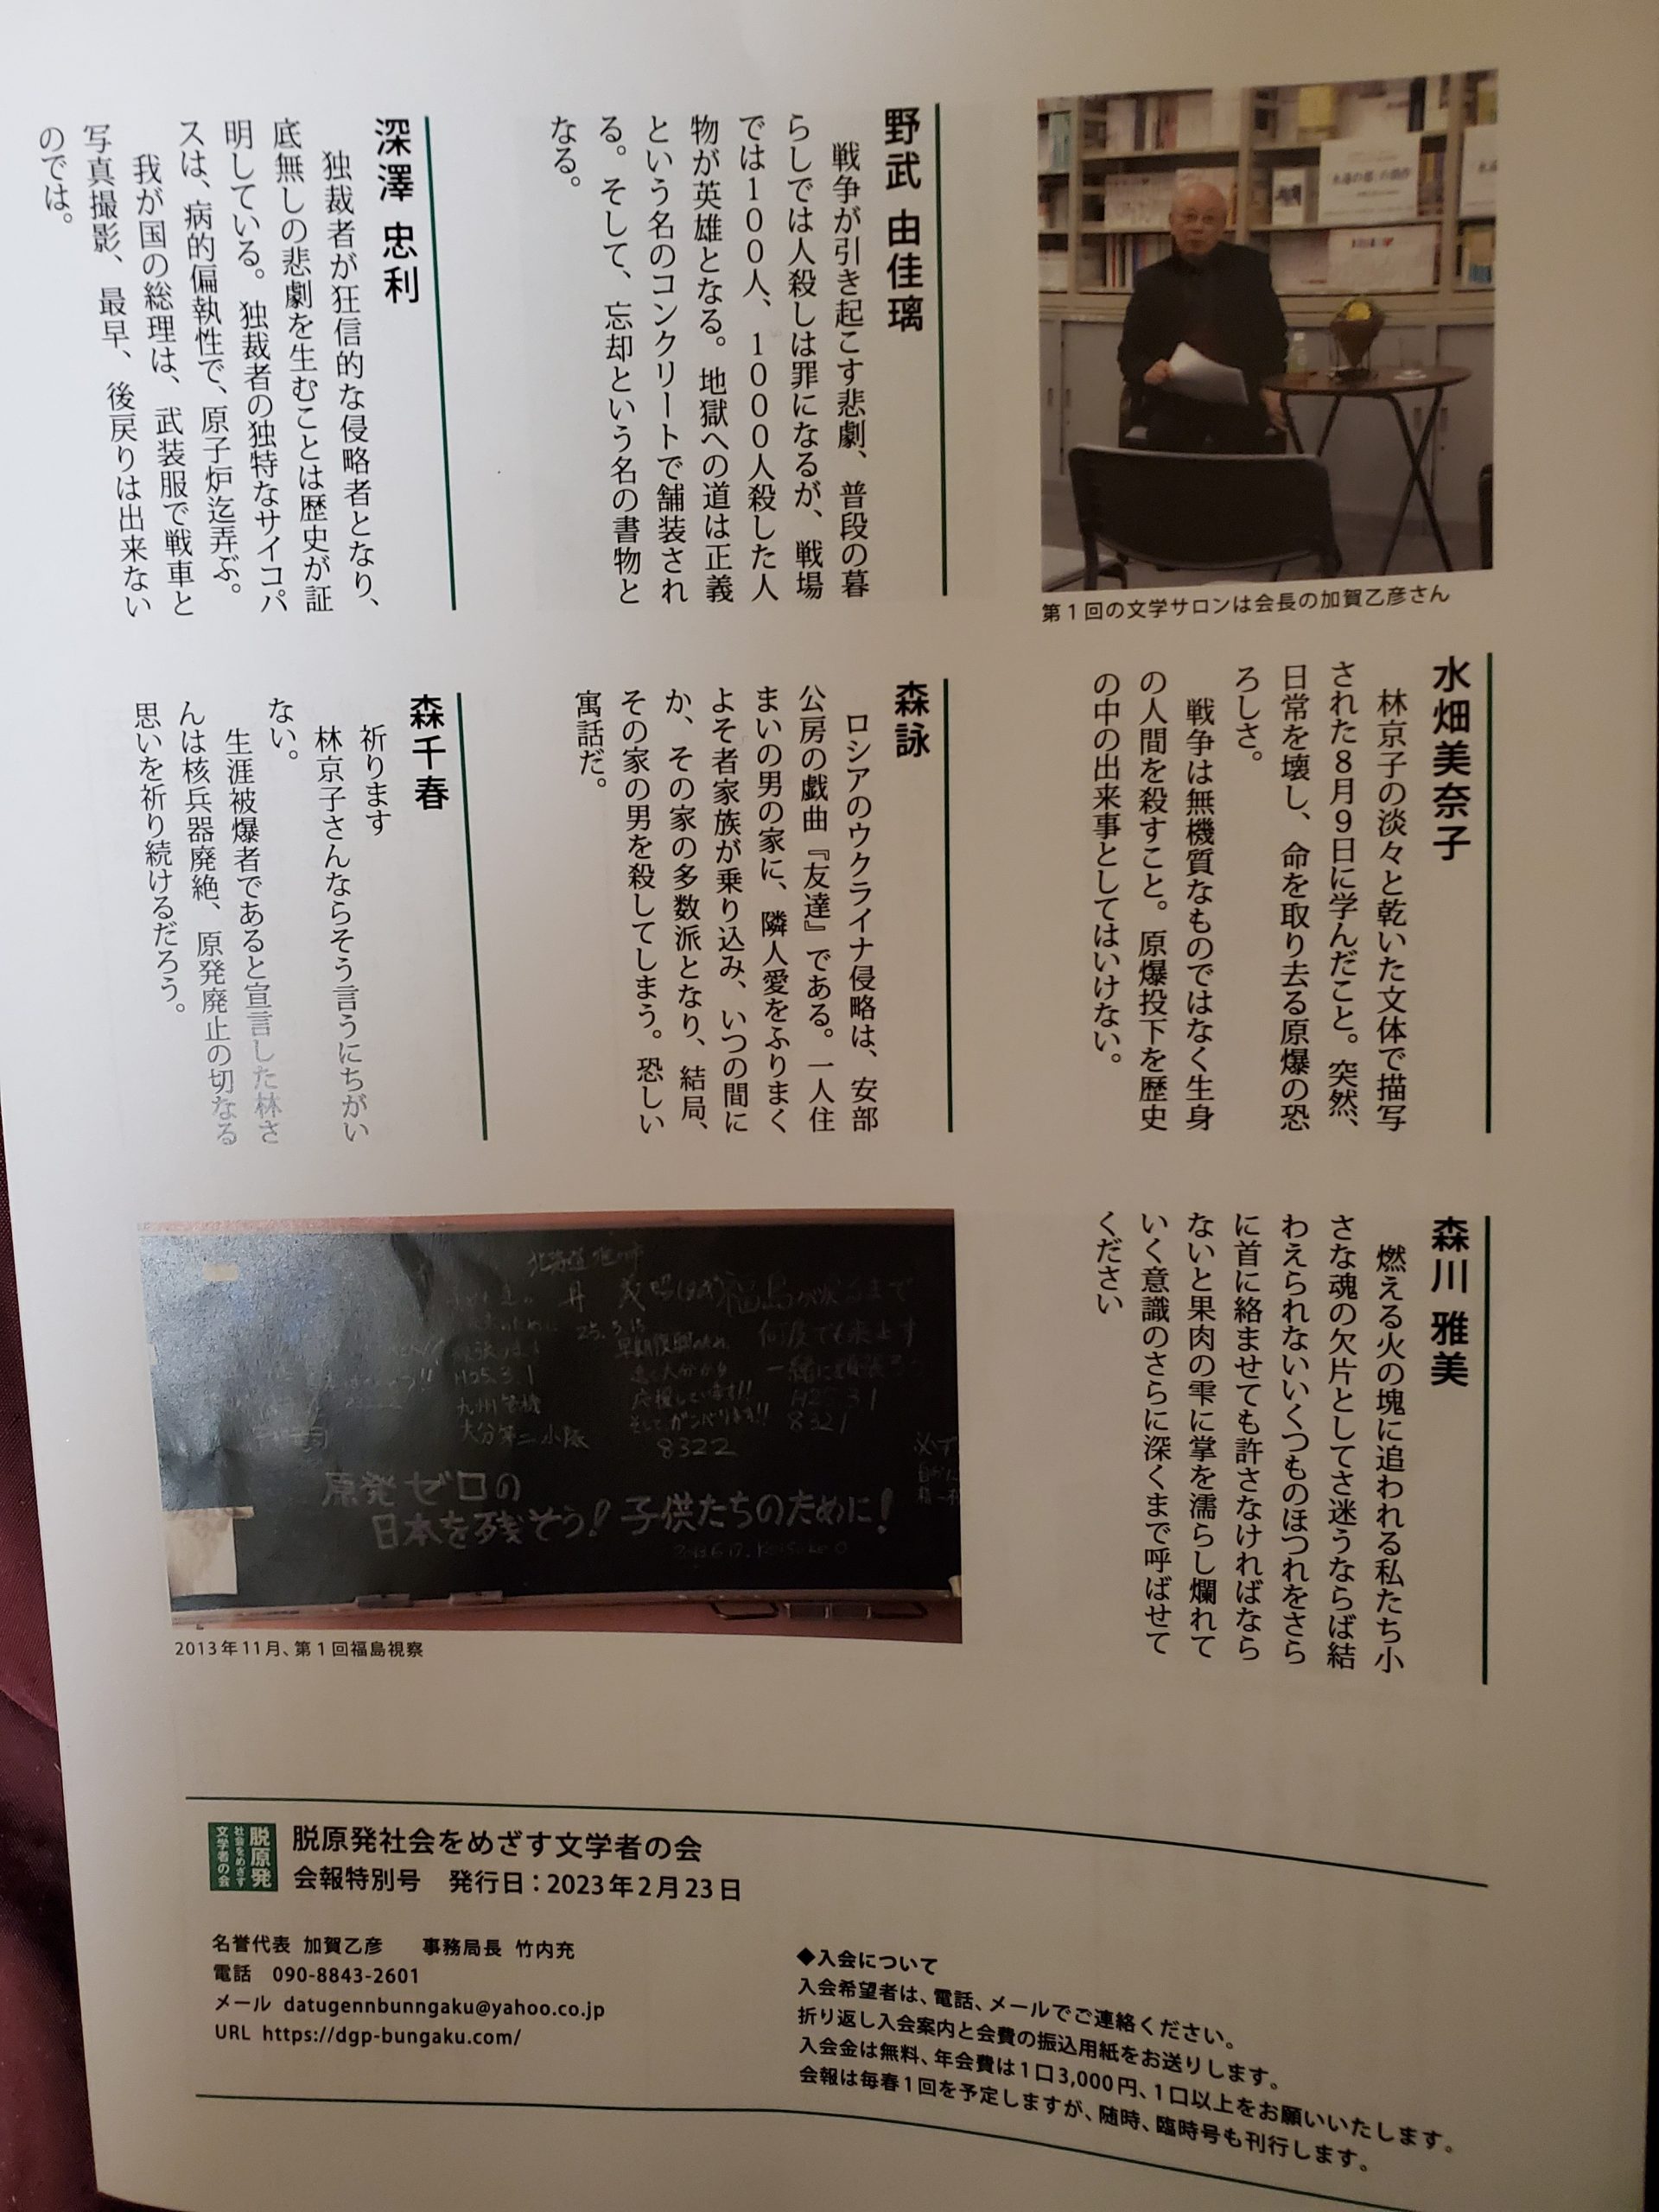 第1回の文学サロンは会長の加賀乙彦さん
野武 由佳璃
戦争が引き起こす悲劇、普段の暮
らしでは人殺しは罪になるが、戦場
では100人、1000人殺した人
物が英雄となる。地獄への道は正義
という名のコンクリートで舗装され
る。そして、忘却という名の書物と
なる。
深澤 忠利
独裁者が狂信的な侵略者となり、
底無しの悲劇を生むことは歴史が証
明している。独裁者の独特なサイコパ
スは、病的偏執性で、原子炉迄弄ぶ。
我が国の総理は、武装服で戦車と
写真撮影、最早、後戻りは出来ない
のでは。
水畑美奈子
林京子の淡々と乾いた文体で描写
された8月9日に学んだこと。突然、
日常を壊し、命を取り去る原爆の恐
ろしさ。
戦争は無機質なものではなく生身
の人間を殺すこと。原爆投下を歴史
の中の出来事としてはいけない。
森詠
ロシアのウクライナ侵略は、安部
公房の戯曲『友達』である。一人住
まいの男の家に、隣人愛をふりまく
よそ者家族が乗り込み、いつの間に
か、その家の多数派となり、結局、
その家の男を殺してしまう。恐しい
寓話だ。
森千春
祈ります
林京子さんならそう言うにちがい
ない。
生涯被爆者であると宣言した林さ
んは核兵器廃絶、原発廃止の切なる
思いを祈り続けるだろう。
森川 雅美
燃える火の塊に追われる私たち小
さな魂の欠片としてさ迷うならば結
わえられないいくつものほつれをさら
に首に絡ませても許さなければなら
ないと果肉の雫に掌を濡らし爛れて
いく意識のさらに深くまで呼ばせて
ください
福島が戻るまで
何度でも来ます
25.3.15
早期復興のため
応援しています!!
そしてガンバります!!
8322
8321
H25.3.1
九州管機
大分第二小隊
原発ゼロの
日本を残そう!子供たちのために!
2013年11月、第1回福島視察
脱原発
社会をめざす
文学者の会
脱原発社会をめざす文学者の会
会報特別号 発行日:2023年2月23日
名誉代表 加賀乙彦 事務局長 竹内充
電話 090-8843-2601
メール datugennbunngaku@yahoo.co.jp
URL https://dgp-bungaku.com/
◆入会について
入会希望者は、電話、メールでご連絡ください。
折り返し入会案内と会費の振込用紙をお送りします。
入会金は無料、年会費は1口3,000円、1口以上をお願いいたします。
会報は毎春1回を予定しますが、随時、臨時号も刊行します。